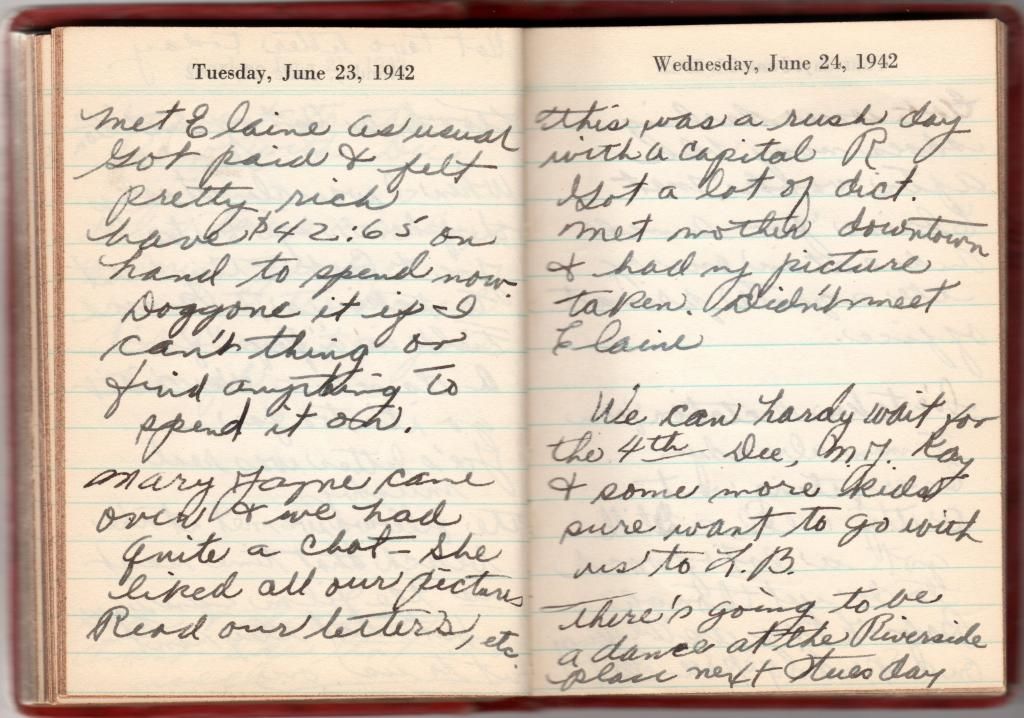 Tuesday, June 23, 1942
met Elaine as usual
Got paid & felt
pretty rich
have $42:65 on
hand to spend now.
Doggone it if I
can't thing or
find anything to
spend it on.
Mary Jayne came
over & we had
quite a chat - She
liked all our pictures
Read our letters, etc.
Wednesday, June 24, 1942
this was a rush day
with a capital R
Got a lot of dict.
met mother downtown
& had my picture
taken. Didn't meet
Elaine
We can hardly wait for
the 4th Dee, M.J. Kay
& some more kids
sure want to go with
us to L.B.
There's going to be
a dance at the Riverside
place next Tuesday